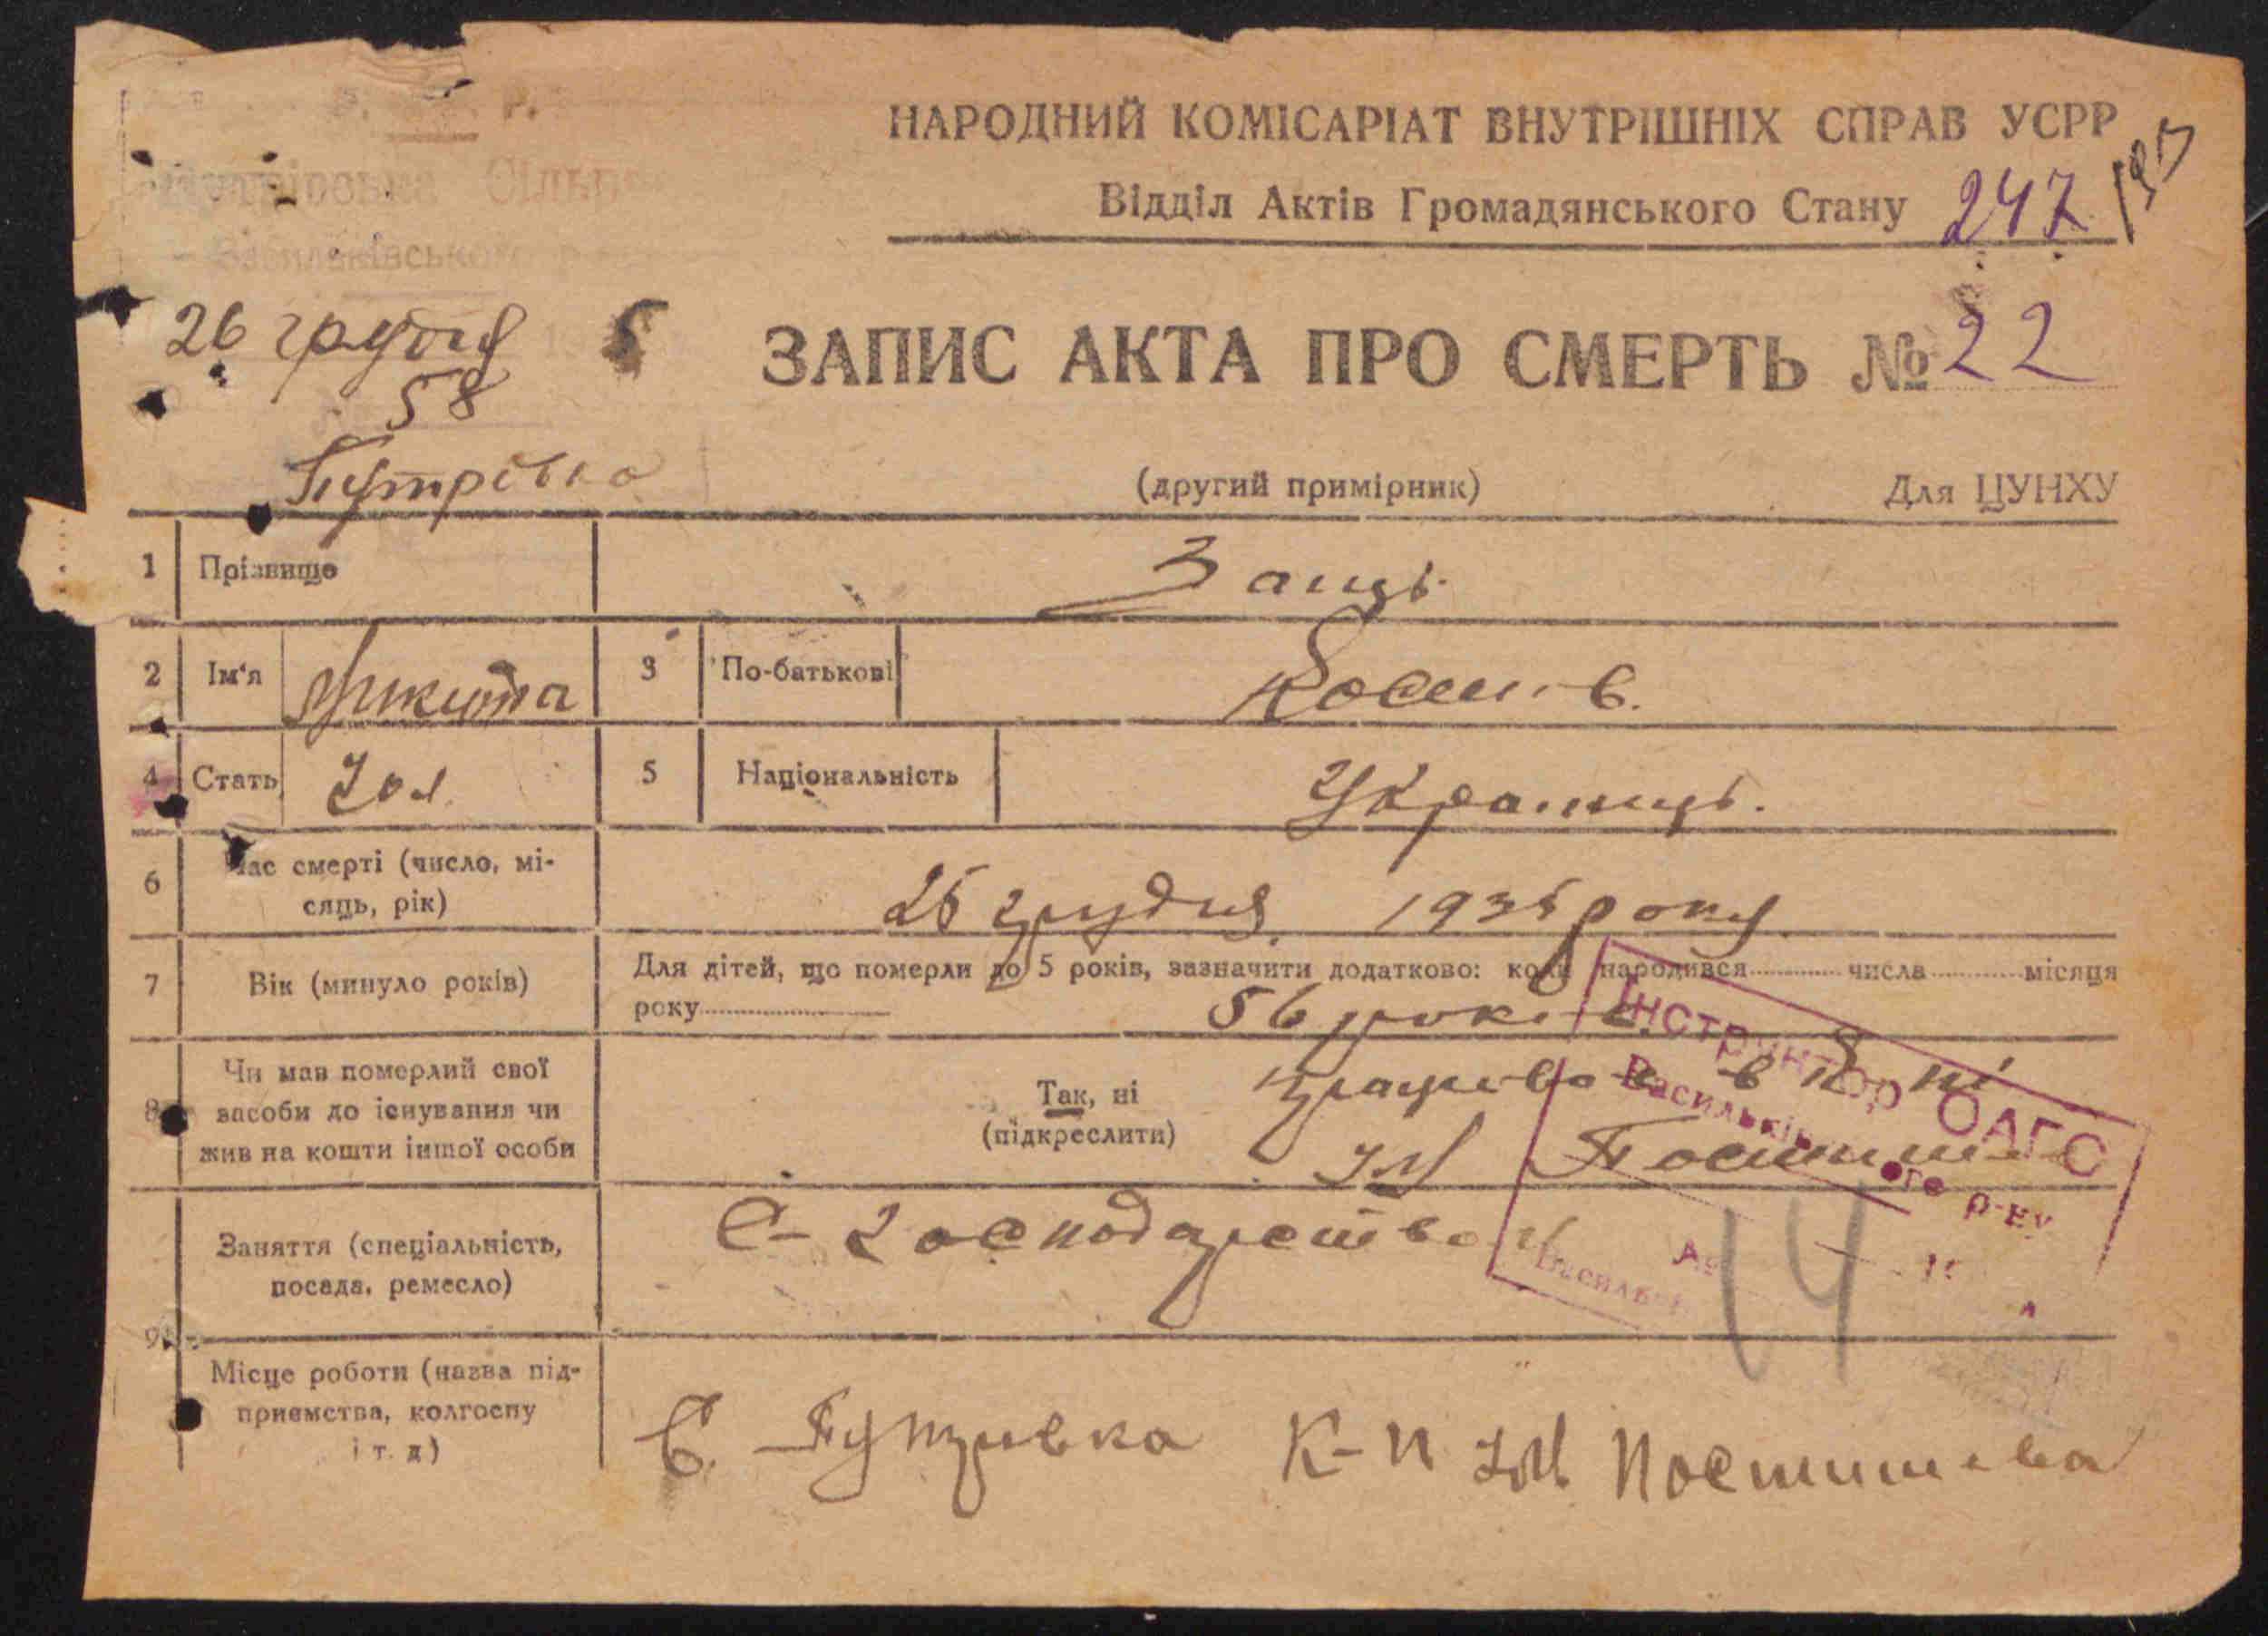 НАРОДНИЙ КОМІСАРІАТ ВНУТРІШНІХ СПРАВ УСРР
Відділ Актів Громадянського Стану 247
Сільн
Васильківсько
26 грудня 5
58
Путрівка
ЗАПИС АКТА ПРО СМЕРТЬ № 22
(другий примірник) Для ЦУНХУ
1 Прізвище Заяць
2 Ім'я Микита 3 По-батькові
4 Стать Чол. 5 Національність Українець.
6 Час смерті (число, мі-
сяць, рік) 25 грудня 1935 року
7 Вік (минуло років) Для дітей, що померли до 5 років, зазначити додатково: коли народився числа місяця
року 56 років
8 Чи мав померлий свої
засоби до існування чи
жив на кошти іншої особи
Так, ні
(підкреслити)
в к-пі
ім Постише
Інструктор ОАГС
Васильківського р-ну
№
14
9 Заняття (спеціальність,
посада, ремесло) С-господарство
Місце роботи (назва під-
приємства, колгоспу
і т. д) С. Путрівка К-п ім Постишева